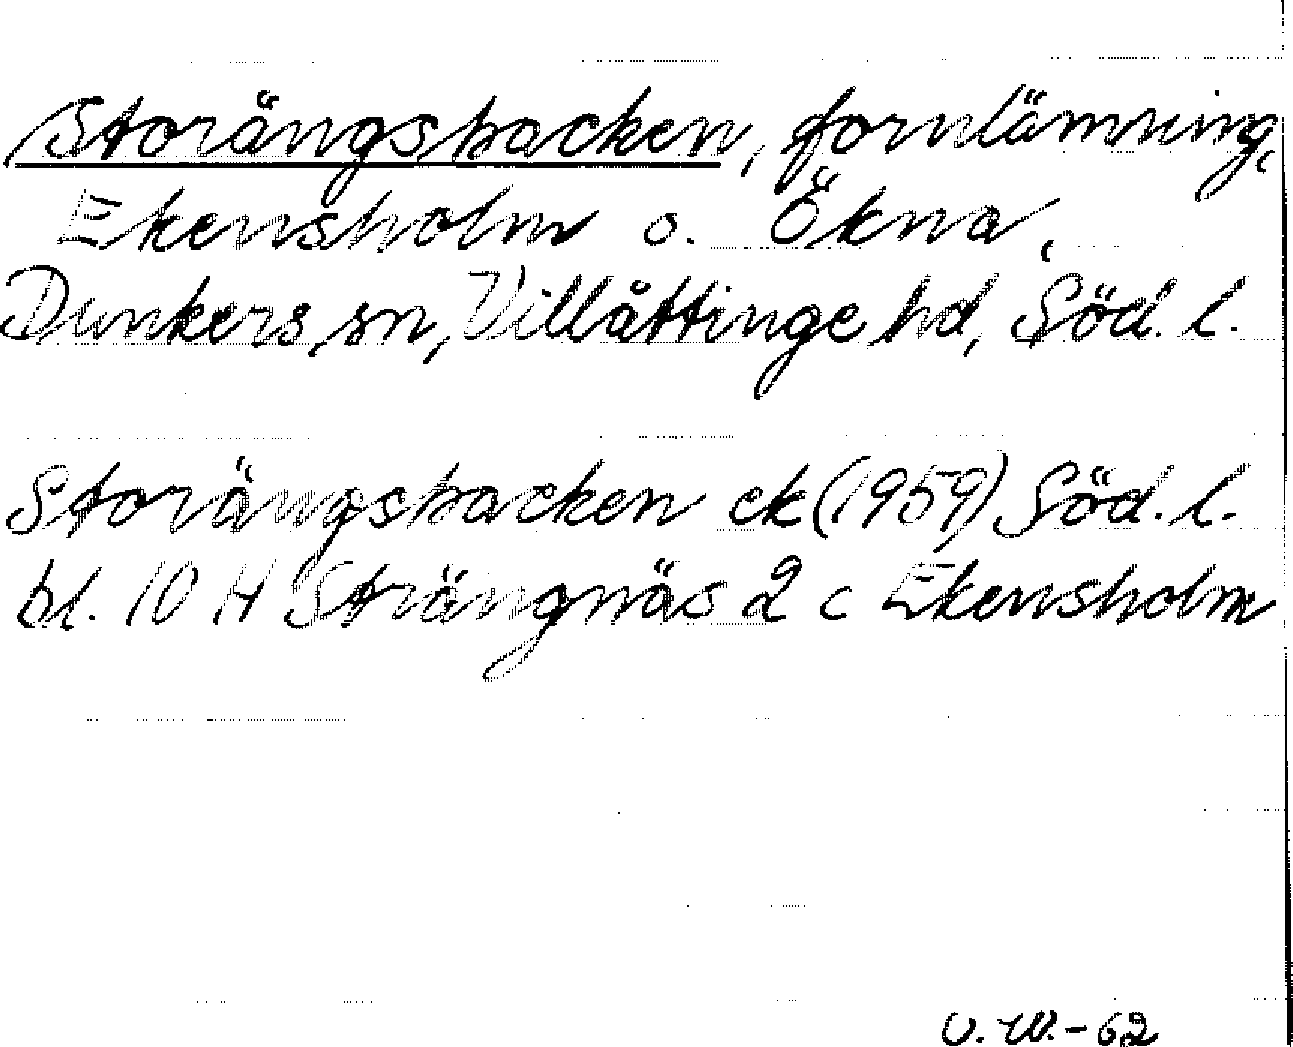 Storängsbacken, fornlämning,
Ekensholm o. Ökna,
Dunkers sn, Villåttinge hd, Söd. l.
Storängsbacken ek (1959) Söd. l.
bl. 10 H Strängnäs 2 c Ekensholm
U. W. - 62